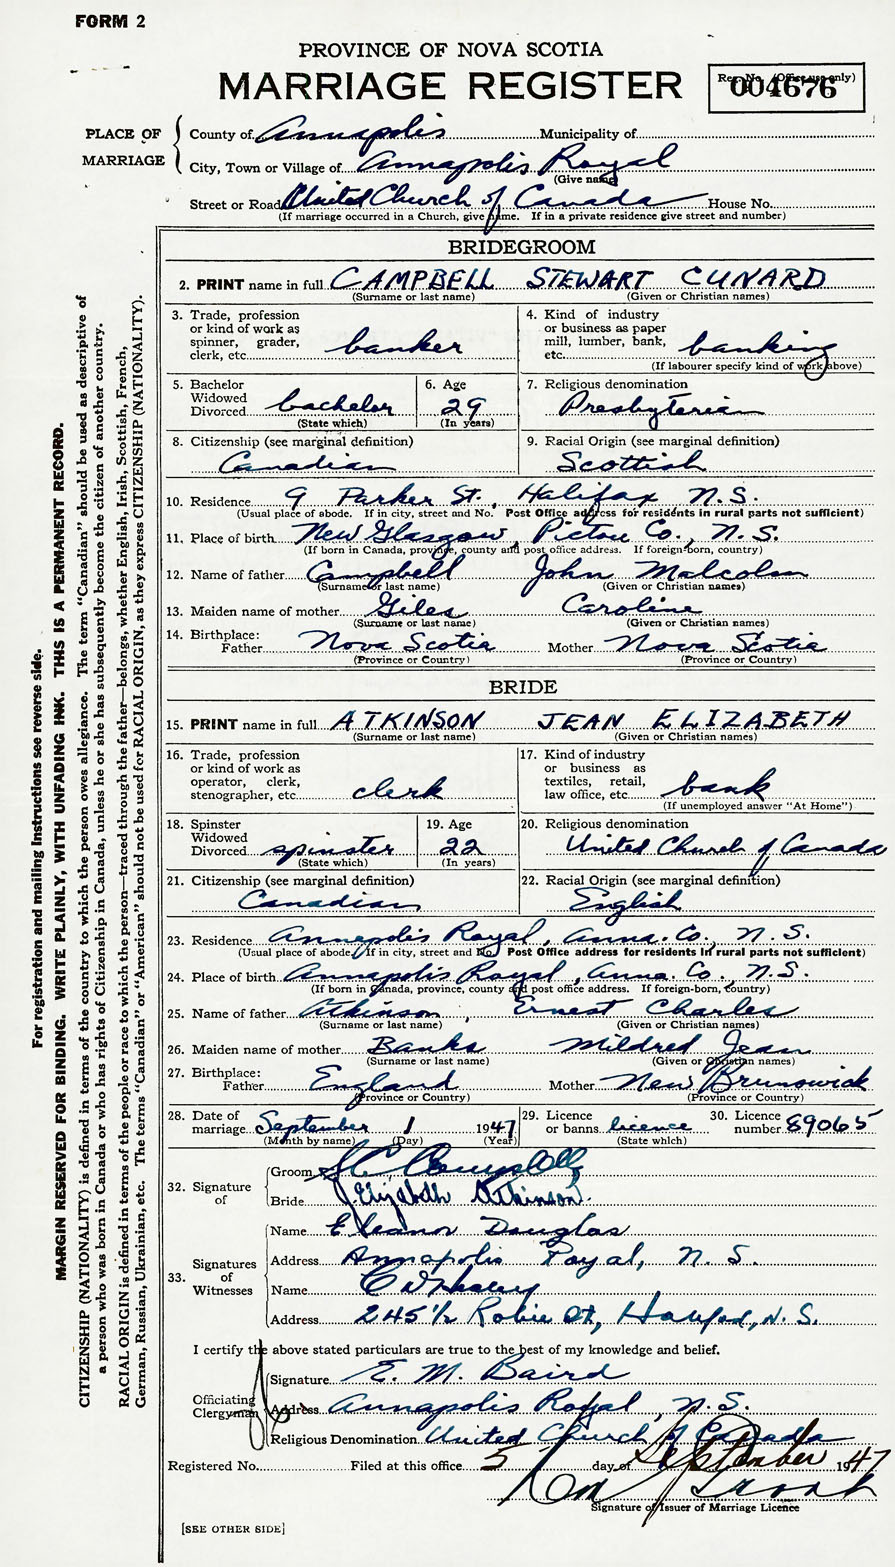 FORM 2
PROVINCE OF NOVA SCOTIA
MARRIAGE REGISTER
Reg. No. (Office use only)
004676
PLACE OF MARRIAGE
County of Annapolis Municipality of
City, Town or Village of Annapolis Royal
(Give name)
Street or Road United Church of Canada House No.
(If marriage occurred in a Church, give name. If in a private residence give street and number)
BRIDEGROOM
2. PRINT name in full CAMPBELL STEWART CUNARD
(Surname or last name) (Given or Christian names)
3. Trade, profession
or kind of work as
spinner, grader,
clerk, etc. banker
4. Kind of industry
or business as paper
mill, lumber, bank,
etc. banking
(If labourer specify kind of work above)
5. Bachelor
Widowed
Divorced bachelor
(State which)
6. Age
29
(In years)
7. Religious denomination
Presbyterian
8. Citizenship (see marginal definition)
Canadian
9. Racial Origin (see marginal definition)
Scottish
10. Residence 9 Parker St., Halifax N.S.
(Usual place of abode. If in city, street and No. Post Office address for residents in rural parts not sufficient)
11. Place of birth New Glasgow, Pictou Co., N.S.
(If born in Canada, province, county and post office address. If foreign-born, country)
12. Name of father Campbell John Malcolm
(Surname or last name) (Given or Christian names)
13. Maiden name of mother Giles Caroline
(Surname or last name) (Given or Christian names)
14. Birthplace:
Father Nova Scotia Mother Nova Scotia
(Province or Country) (Province or Country)
BRIDE
15. PRINT name in full ATKINSON JEAN ELIZABETH
(Surname or last name) (Given or Christian names)
16. Trade, profession
or kind of work as
operator, clerk,
stenographer, etc. clerk
17. Kind of industry
or business as
textiles, retail,
law office, etc. bank
(If unemployed answer "At Home")
18. Spinster
Widowed
Divorced spinster
(State which)
19. Age
22
(In years)
20. Religious denomination
United Church of Canada
21. Citizenship (see marginal definition)
Canadian
22. Racial Origin (see marginal definition)
English
23. Residence Annapolis Royal, Anna. Co., N.S.
(Usual place of abode. If in city, street and No. Post Office address for residents in rural parts not sufficient)
24. Place of birth Annapolis Royal, Anna. Co., N.S.
(If born in Canada, province, county and post office address. If foreign-born, country)
25. Name of father Atkinson, Ernest Charles
(Surname or last name) (Given or Christian names)
26. Maiden name of mother Banks Mildred Jean
(Surname or last name) (Given or Christian names)
27. Birthplace:
Father England Mother New Brunswick
(Province or Country) (Province or Country)
28. Date of
marriage September 1 1947
(Month by name) (Day) (Year)
29. Licence
or banns licence
(State which)
30. Licence
number 89065
32. Signature of
Groom S C Campbell
Bride J. Elizabeth Atkinson.
33. Signatures of Witnesses
Name Eleanor Douglas
Address Annapolis Royal, N.S.
Name
Address 245 1/2 Robie St, Halifax, N.S.
I certify the above stated particulars are true to the best of my knowledge and belief.
Officiating Clergyman
Signature E. M. Baird
Address Annapolis Royal, N.S.
Religious Denomination United Church of Canada
Registered No. Filed at this office 5 day of September 1947
Signature of Issuer of Marriage Licence
[SEE OTHER SIDE]
For registration and mailing Instructions see reverse side.
MARGIN RESERVED FOR BINDING. WRITE PLAINLY, WITH UNFADING INK. THIS IS A PERMANENT RECORD.
CITIZENSHIP (NATIONALITY) is defined in terms of the country to which the person owes allegiance. The term "Canadian" should be used as descriptive of
a person who was born in Canada or who has rights of Citizenship in Canada, unless he or she has subsequently become the citizen of another country.
RACIAL ORIGIN is defined in terms of the people or race to which the person—traced through the father—belongs, whether English, Irish, Scottish, French,
German, Russian, Ukrainian, etc. The terms "Canadian" or "American" should not be used for RACIAL ORIGIN, as they express CITIZENSHIP (NATIONALITY).